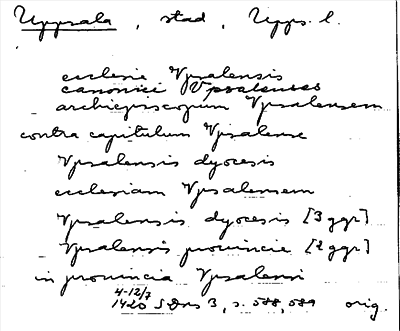 Uppsala, stad, Upps. l.
ecclesie Vpsalensis
canonici Vpsalenses
archiepiscopum Vpsalensem
contra capitulum Vpsalense
Vpsalensis dyocesis
ecclesiam Vpsalensem
Vpsalensis dyocesis [3 ggr]
Vpsalensis prouincie [2 ggr]
in prouincia Vpsalensi
4-12/7
1420 SDns 3, s. 588, 589 orig.